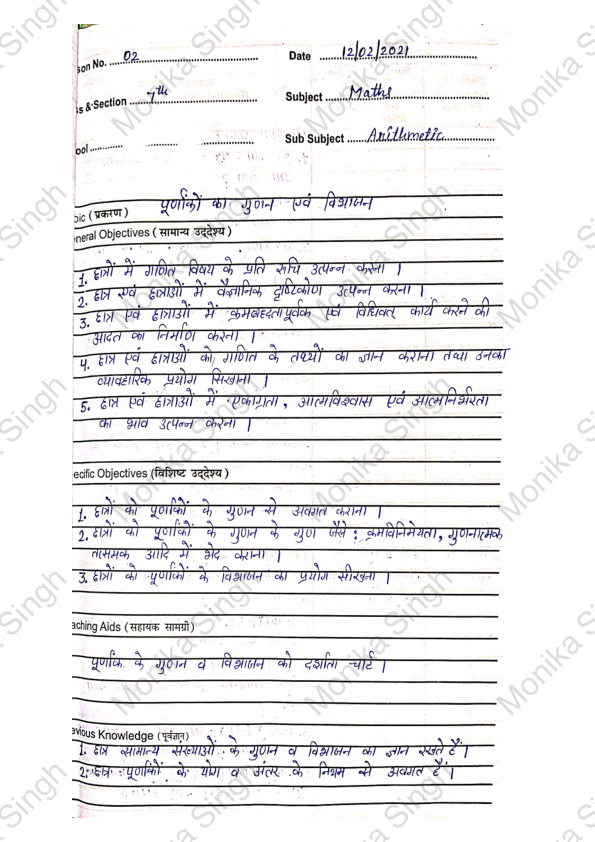 son No. 02
Date 12/02/2021
ss & Section 7th
Subject Maths
ool
Sub Subject Arithmetic
pic ( प्रकरण ) पूर्णांकों का गुणन एवं विभाजन
neral Objectives ( सामान्य उद्देश्य )
1. छात्रों में गणित विषय के प्रति रुचि उत्पन्न करना ।
2. छात्र एवं छात्राओं में वैज्ञानिक दृष्टिकोण उत्पन्न करना ।
3. छात्र एवं छात्राओं में क्रमबद्धतापूर्वक एवं विधिवत् कार्य करने की
आदत का निर्माण करना ।
4. छात्र एवं छात्राओं को गणित के तथ्यों का ज्ञान कराना तथा उनका
व्यावहारिक प्रयोग सिखाना ।
5. छात्र एवं छात्राओं में एकाग्रता, आत्मविश्वास एवं आत्मनिर्भरता
का भाव उत्पन्न करना ।
ecific Objectives (विशिष्ट उद्देश्य )
1. छात्रों को पूर्णांकों के गुणन से अवगत कराना ।
2. छात्रों को पूर्णांकों के गुणन के गुण जैसे : क्रमविनिमेयता, गुणनात्मक
तत्समक आदि में भेद कराना ।
3. छात्रों को पूर्णांकों के विभाजन का प्रयोग सीखना ।
aching Aids ( सहायक सामग्री )
पूर्णांक के गुणन व विभाजन को दर्शाता चार्ट ।
evious Knowledge ( पूर्वज्ञान )
1. छात्र सामान्य संख्याओं के गुणन व विभाजन का ज्ञान रखते हैं ।
2. छात्र पूर्णांकों के योग व अंतर के नियम से अवगत हैं ।
Monika Singh